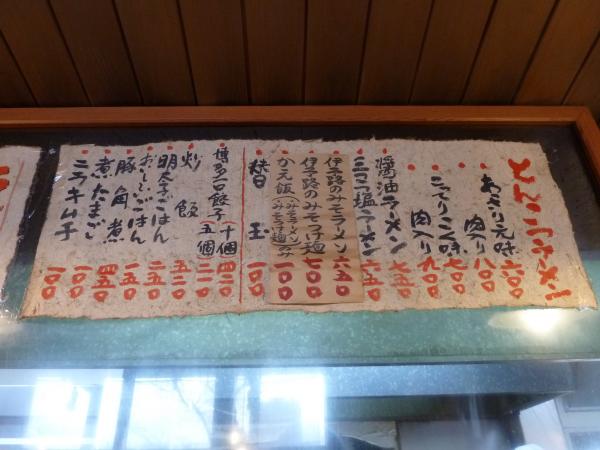 とんこつラーメン
あっさり元味 六〇〇
肉入り 八〇〇
こってりこく味 七〇〇
肉入り 九〇〇
醤油ラーメン 七五〇
ミニ塩ラーメン
伊予路のみそラーメン 六五〇
伊予路のみそつけ麺 七〇〇
かえ飯(みそラーメンみそつけ麺のみ) 一〇〇
替玉 一〇〇
博多一口餃子(十個 四二〇
五個 二一〇
炒飯 五二〇
明太子ごはん 二五〇
おしどりごはん 一五〇
豚角煮 四五〇
煮たまご 一〇〇
ニラキムチ 一〇〇